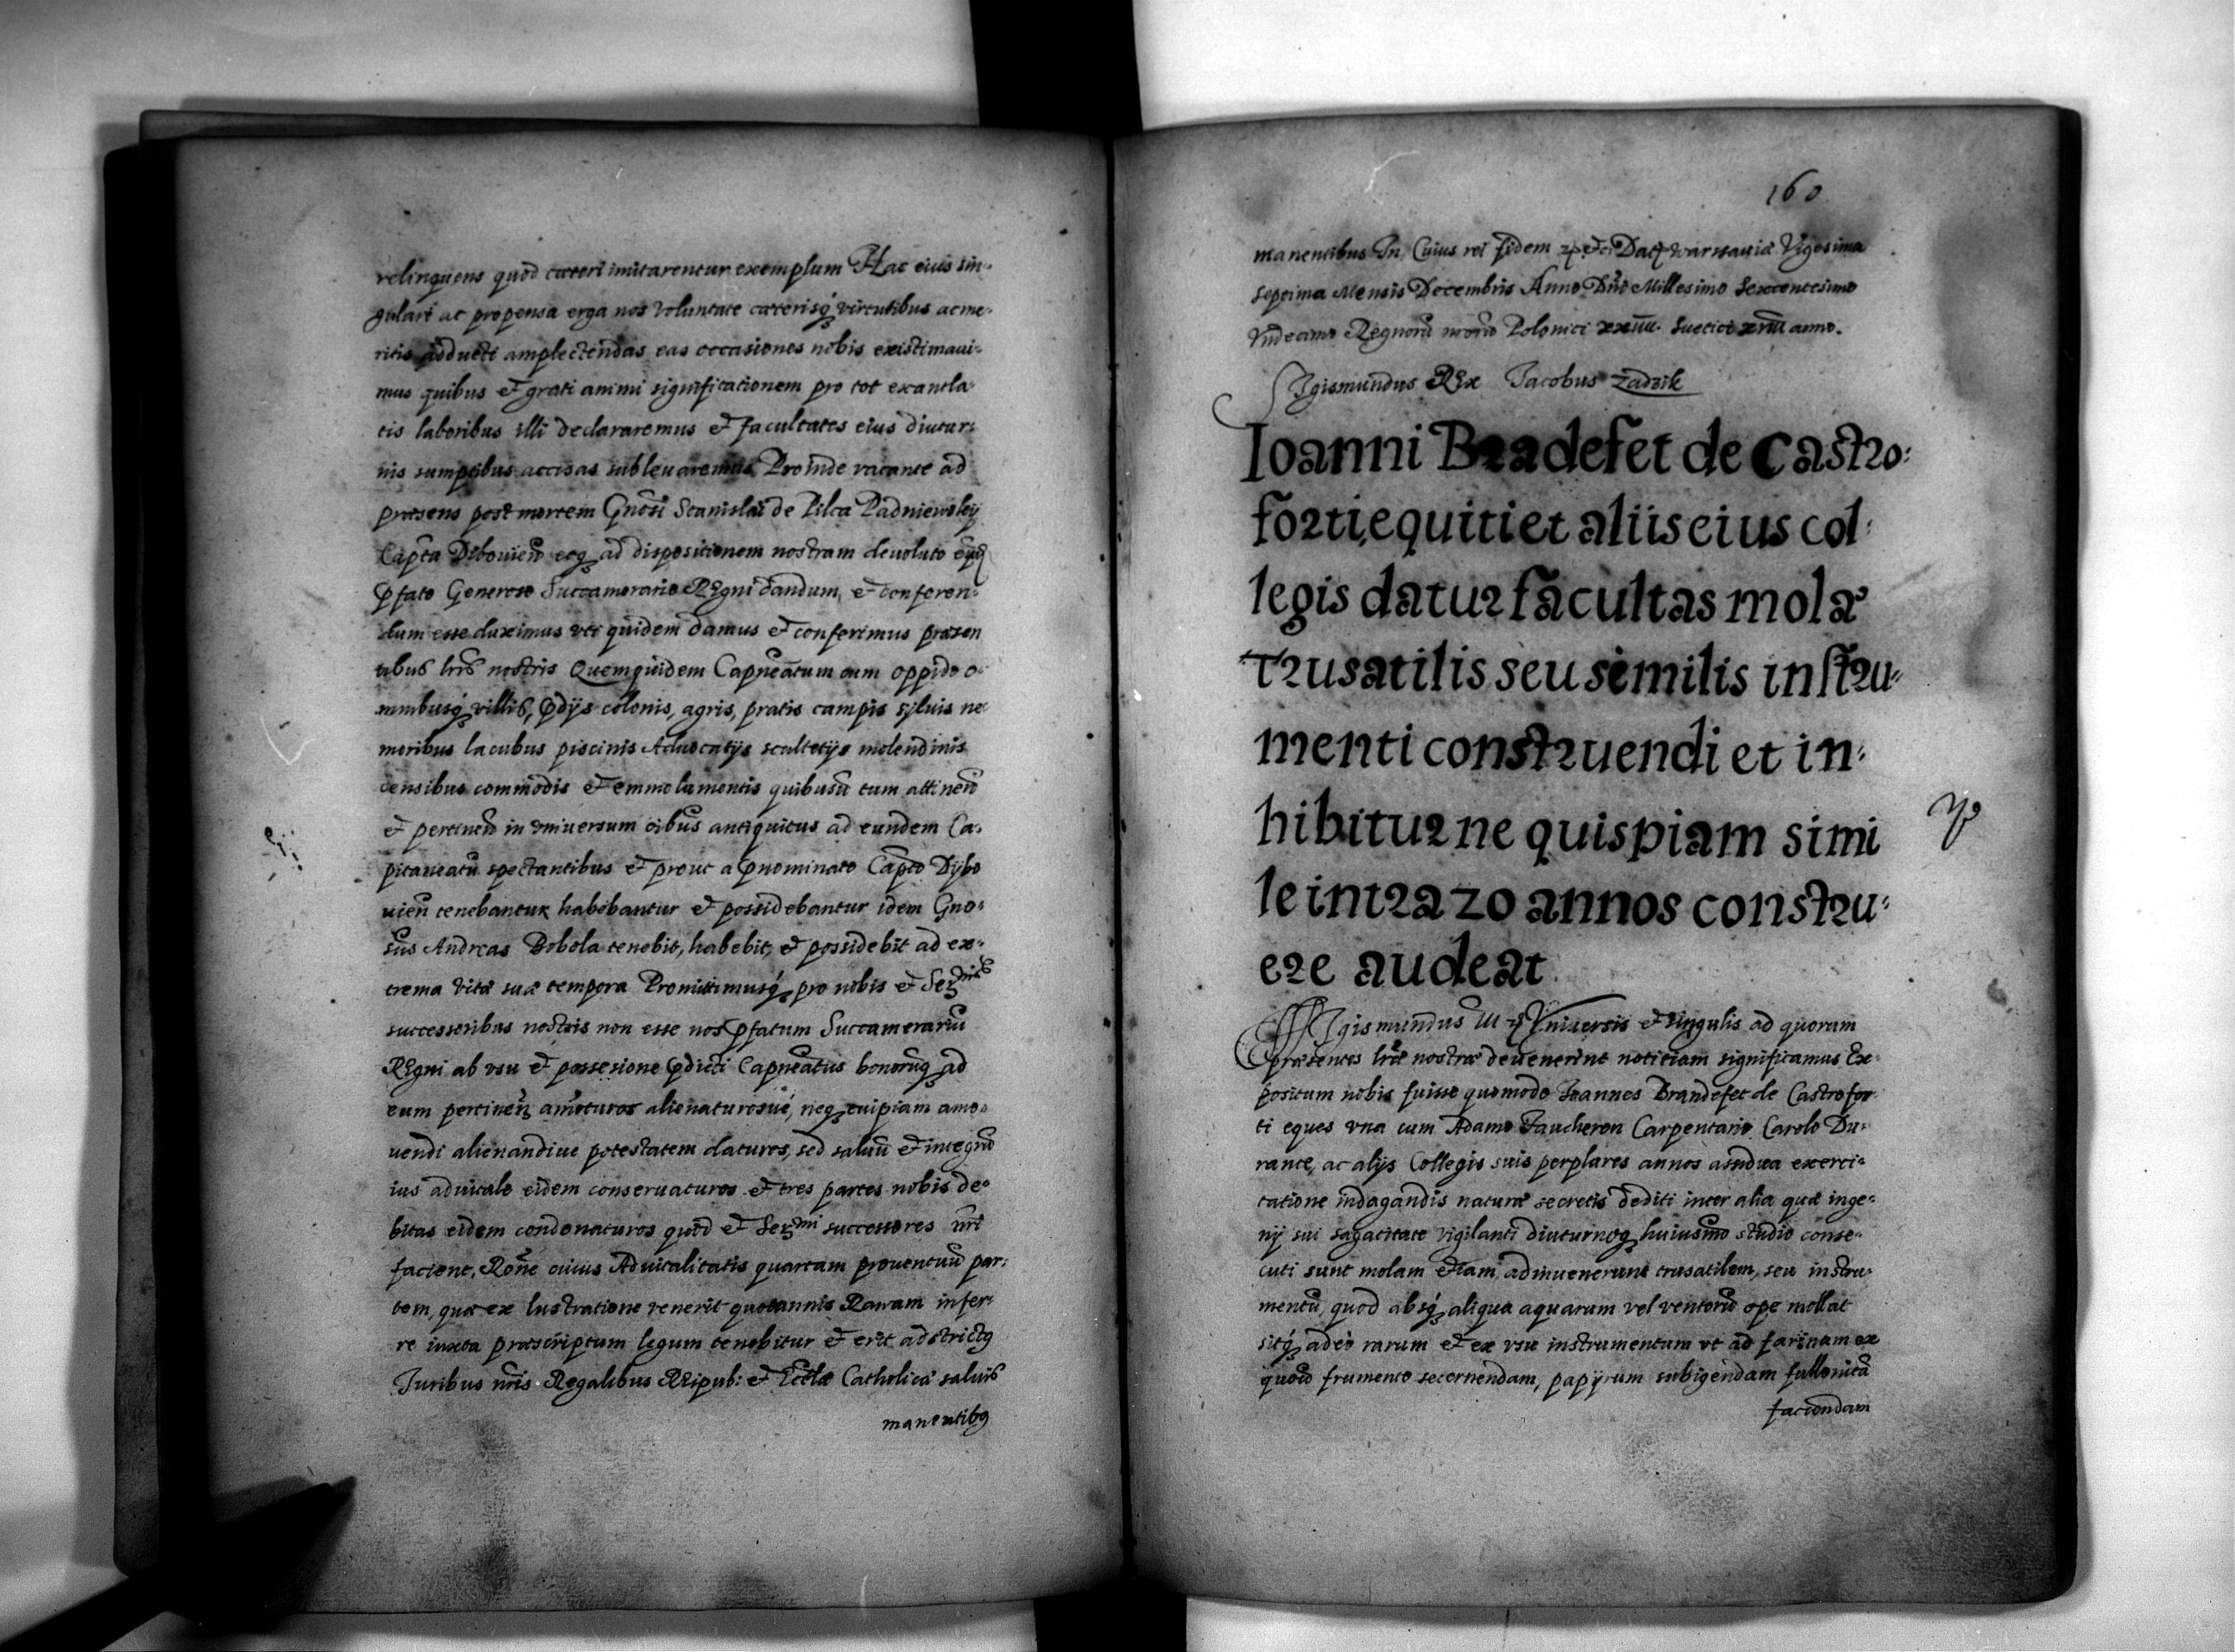 relinquens quod cæteri imitarentur exemplum Hac eius sin-
gulari ac propensa erga nos voluntate cæterisq́ virtutibus ac me-
ritis adducti amplectendas eas occasiones nobis existimaui-
mus quibus et grati animi significationem pro tot exantla-
tis laboribus illi declararemus et facultates eius diutur-
nis sumptibus accisas subleuaremus Proinde vacante ad
præsens post mortem Gnosi Stanislai de Pilca Padniewskij
Capta Dibouien eoq ad dispositionem nostram deuoluto
pfato Generoso Succamerario Regni dandum, et conferen-
dum esse duximus vti quidem damus et conferimus præsen
tibus lris nostris Quemquidem Capneatum cum oppido o-
mnibusq́ villis, pdijs colonis, agris, pratis campis syluis ne-
moribus lacubus piscinis Aduocatijs scultetijs molendinis
censibus commodis et emmolumentis quibusu tum attinen
et pertinen in vniuersum oibus antiquitus ad eundem Ca-
pitaneatu spectantibus et prout a pnominato Capto Dybo
uien tenebantur habebantur et possidebantur idem Gno-
sus Andreas Bobola tenebit, habebit, et possidebit ad ex-
trema vitæ suæ tempora Promittimusq́ pro nobis et Sermis
successoribus nostris non esse nos pfatum Succamerariu
Regni ab vsu et possesione pdicti Capneatus bonorūq ad
eum pertinen amoturos alienaturosue, neq cuipiam amo-
uendi alienandiue potestatem daturos, sed saluū et integrū
ius aduitale eidem conseruaturos et tres partes nobis de-
bitas eidem condonaturos quod et Sermi successores nri
facient, Rone cuius Aduitalitatis quartam prouentuū par-
tem, quæ ex lustratione venerit quotannis Rawam infer-
re iuxta præscriptum legum tenebitur et erit adstrictq
Iuribus nris Regalibus Reipub: et Ecclæ Catholicæ saluis
manentibq
160
manentibus In Cuius rei fidem Dat Warsauiæ Vigesima
septima Mensis Decembris Anno Dni Millesimo Sexcentesimo
Vndecimo Regnorū nrorū Polonici xxiiii. Suetici xviii anno.
Sigismundus Rex Jacobus Zadzik
Ioanni Bradefet de Castro-
forti equiti et aliis eius col-
legis datur facultas mola
trusatilis seu similis instru-
menti construendi et in-
hibitur ne quispiam simi
le intra 20 annos constru-
ere audeat
Sigismundus III Vniuersis et singulis ad quorum
præsentes lræ nostræ deuenerint notitiam significamus Ex-
positum nobis fuisse quomodo Ioannes Brandefet de Castrofor-
ti eques vna cum Adamo Faucheron Carpentario Carolo Du-
rant, ac alijs Collegis suis perplures annos assidua exerci-
tatione indagandis naturæ secretis dediti inter alia quæ inge-
nij sui sagacitate vigilanti diuturnoq huiusmo studio conse-
cuti sunt molam etiam adinuenerunt trusatilem, seu instru-
mentū, quod absq́ aliqua aquarum vel ventorū ope mollat
sitq́ adeo rarum et ex vsu instrumentum vt ad farinam ex
quouis frumento secernendam, papyrum subigendam fulloniæ
faciendam